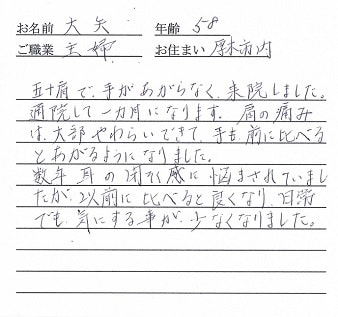 お名前 大矢 年齢 58
ご職業 主婦 お住まい 厚木市内
五十肩で、手があがらなく、来院しました。
通院して一カ月になります。肩の痛み
は、大部やわらいできて、手も前に比べる
とあがるようになりました。
数年耳の閉そく感に悩まされていまし
たが、以前に比べると良くなり、日常
でも、気にする事が、少なくなりました。